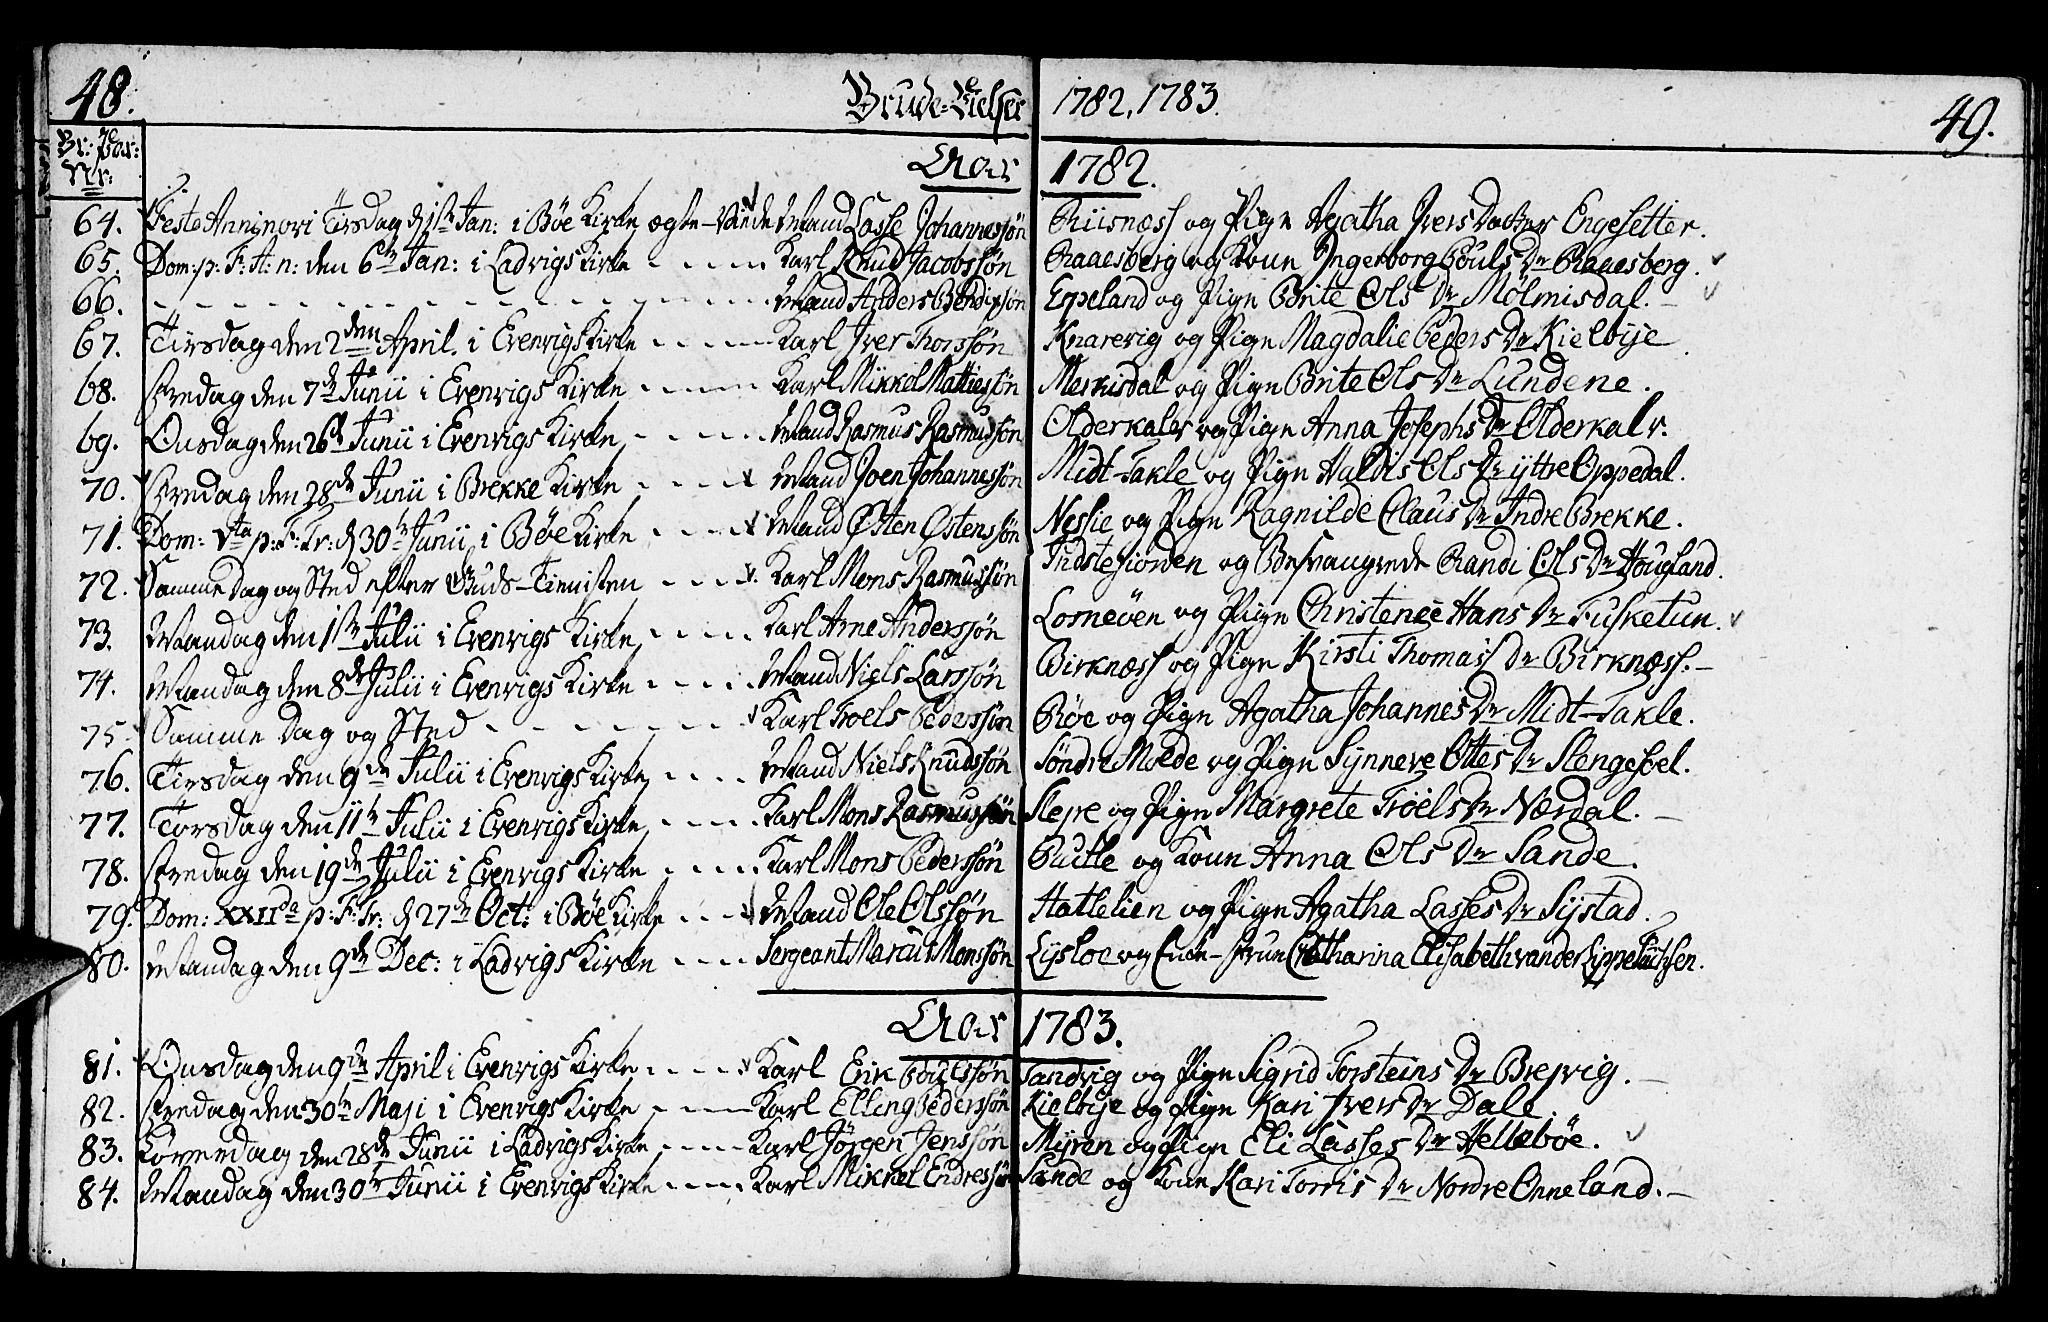 48.
Brude-Vielser
1782, 1783.
49.
Br: Par:
Nr:
Aar 1782.
64. Festo Anni novi Tirsdag d 1ste Jan: i Böe Kirke ægte-Viede Mand Lasse Johannessøn Riisnæss og Pige Agatha Ivers Datter Engesetter.
65. Dom: p: F: A: n: den 6te Jan: i Ladvigs Kirke - - - - Karl Knud Jacobssøn Raaesberg og Kone Ingerborg Pouls Dr Raaesberg.
66. - - - - - - - - - - - - Mand Anders Bendixsøn Eppeland og Pige Brite Ols Dr Mølmisdal.
67. Tirsdag den 2den April. i Evenvigs Kirke - - - - Karl Iver Thorssøn Knarevig og Pige Magdalie Peders Dr Kielbye
68. Fredag den 7de Junii i Evenvigs Kirke - - - - Karl Mikkel Mattiessøn Merkisdal og Pige Brite Ols Dr Lundene.
69. Onsdag den 26de Junii i Evenvigs Kirke - - - - Mand Rasmus Rasmussøn Olderkalv og Pige Anna Josephs Dr Olderkalv.
70. Fredag den 28de Junii i Brekke Kirke - - - - Mand Joen Johannessøn Midt-Takle og Pige Valdis Ols Dr yttre Oppedal.
71. Dom: Vta p: F: Tr: d 30te Junii i Böe Kirke - - - - Mand Østen Østenssøn Nessie og Pige Ragnilde Claus Dr Indre Brekke.
72. Samme Dag og Sted efter Guds-Tienisten - - - - Karl Mons Rasmussøn Indstefionden og Besvangrede Randi Ols Dr Hougland.
73. Mandag den 1ste Julii i Evenvigs Kirke - - - - Karl Arne Anderssøn Losneöen og Pige Christence Hans Dr Tusketun.
74. Mandag den 8de Julii i Evenvigs Kirke - - - - Mand Niels Larssøn Birknæss og Pige Kirsti Thomas Dr Birknæss.
75. Samme Dag og Sted - - - - - - - Karl Troels Pederssøn Röe og Pige Agatha Johannes Dr Midt-Takle.
76. Tirsdag den 9de Julii i Evenvigs Kirke - - - - Mand Niels Knudssøn Søndre Molde og Pige Synneve Ottes Dr Stengesoel.
77. Torsdag den 11te Julii i Evenvigs Kirke - - - - Karl Mons Rasmussøn Slepe og Pige Margrete Tröels Dr Nærdal.
78. Fredag den 19de Julii i Evenvigs Kirke - - - - Karl Mons Pederssøn Rutle og Kone Anna Ols Dr Sande.
79. Dom: XXIIda p: F: Tr: d 27de Oct: i Böe Kirke - - - Mand Ole Olssøn Hattelien og Pige Agatha Lasses Dr Systad.
80. Mandag den 9de Dec: i Ladvigs Kirke - - - Sergeant Marcus Monssøn Lysloe og Enke-Frue Catharina Elisabeth vander Lippe
Aar 1783.
81. Onsdag den 9de April i Evenvigs Kirke - - - - Karl Erik Poulssøn Sandvig og Pige Sigrid Torsteins Dr Brejvig.
82. Fredag den 30te Maji i Evenvigs Kirke - - - Karl Elling Pederssøn Kielbye og Pige Kari Ivers Dr Dale.
83. Løverdag den 28de Junii i Ladvigs Kirke - - - - Karl Jörgen Jenssøn Myren og Pige Eli Lasses Dr Helleböe.
84. Mandag den 30te Junii i Evenvigs Kirke - - - - Karl Mikkel Endressøn Sande og Kone Kari Torris Dr Nordre Onneland.